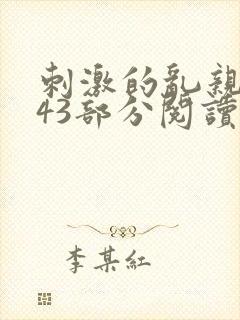 刺激的亂親
43部分閱讀
李某紅